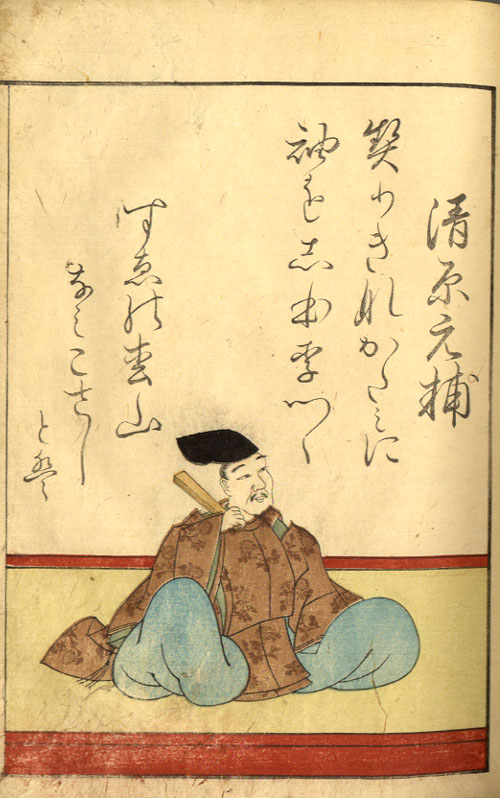 清原元輔
契りきなかたみに
袖をしぼりつゝ
すゑの末山
なみこさし
とは